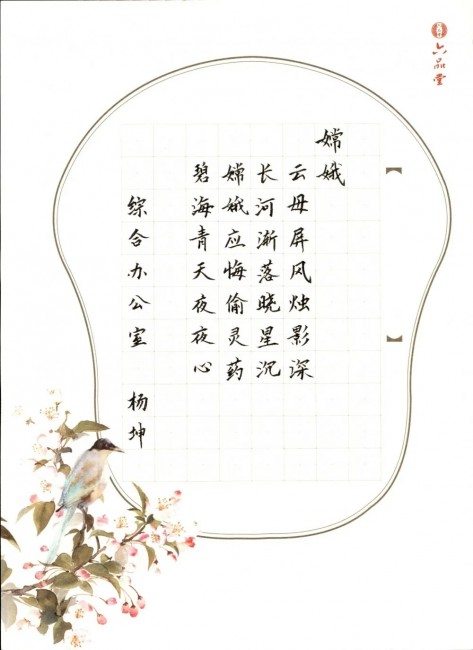 六品堂
嫦娥
云母屏风烛影深
长河渐落晓星沉
嫦娥应悔偷灵药
碧海青天夜夜心
综合办公室 杨坤